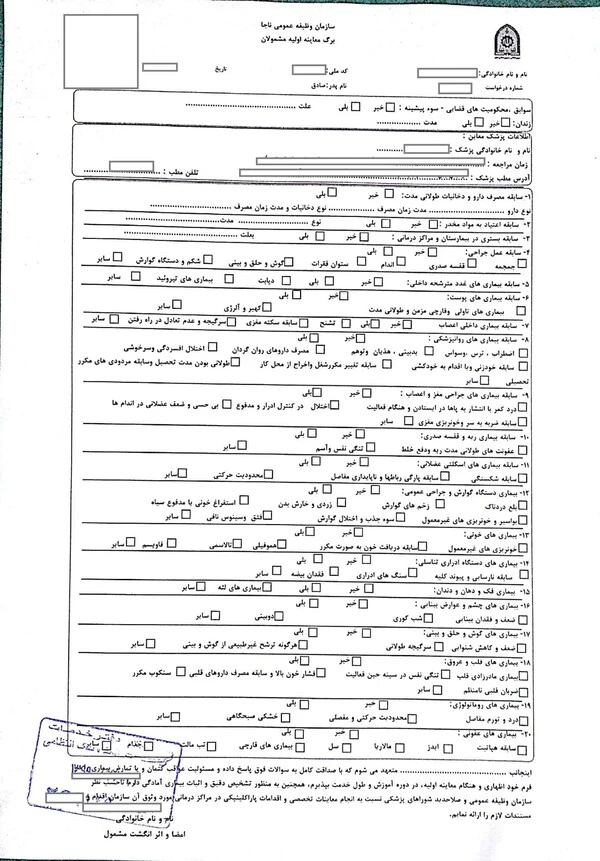 سازمان وظیفه عمومی ناجا
برگ معاینه اولیه مشمولان
نام و نام خانوادگی: کد ملی: تاریخ
شماره درخواست نام پدر: صادق
سوابق ،محکومیت های قضایی - سوء پیشینه : خیر بلی علت ..............................
زندان: خیر بلی مدت ....................
اطلاعات پزشک معاین :
نام و نام خانوادگی پزشک :
زمان مراجعه :
آدرس مطب پزشک : تلفن مطب :
۱- سابقه مصرف دارو و دخانیات طولانی مدت: خیر بلی
نوع دارو .................... مدت زمان مصرف .................... نوع دخانیات و مدت زمان مصرف ....................
۲- سابقه اعتیاد به مواد مخدر : خیر بلی نوع .................... مدت....................
۳- سابقه بستری در بیمارستان و مراکز درمانی : خیر بلی بعلت ....................
۴- سابقه عمل جراحی: خیر بلی
جمجمه قفسه صدری اندام ستوان فقرات گوش و حلق و بینی شکم و دستگاه گوارش سایر
۵- سابقه بیماری های غدد مترشحه داخلی: خیر بلی دیابت بیماری های تیروئید سایر
۶- سابقه بیماری های پوست: خیر بلی
بیماری های تاولی وقارچی مزمن و طولانی مدت کهیر و آلرژی سایر
۷- سابقه بیماری داخلی اعصاب خیر بلی تشنج سابقه سکته مغزی سرگیجه و عدم تعادل در راه رفتن سایر
۸- سابقه بیماری های روانپزشکی: خیر بلی
اضطراب ، ترس ،وسواس بدبینی ، هذیان وتوهم مصرف داروهای روان گردان اختلال افسردگی وسرخوشی
سابقه خودزنی ویا اقدام به خودکشی سابقه تغییر مکررشغل واخراج از محل کار طولانی بودن مدت تحصیل وسابقه مردودی های مکرر
تحصیلی سایر
۹- سابقه بیماری های جراحی مغز و اعصاب : خیر بلی
درد کمر با انتشار به پاها در ایستادن و هنگام فعالیت اختلال در کنترل ادرار و مدفوع بی حسی و ضعف عضلانی در اندام ها
سابقه ضربه به سر وخونریزی مغزی سایر
۱۰- سابقه بیماری ریه و قفسه صدری: خیر بلی
عفونت های طولانی مدت ریه ودفع خلط تنگی نفس وآسم سایر
۱۱- سابقه بیماری های اسکلتی عضلانی: خیر بلی
سابقه شکستگی سابقه پارگی رباطها و ناپایداری مفاصل محدودیت حرکتی سایر
۱۲- بیماری دستگاه گوارش و جراحی عمومی: خیر بلی
بلع دردناک زخم های گوارش زردی و خارش بدن استفراغ خونی یا مدفوع سیاه
بواسیر و خونریزی های غیرمعمول سوء جذب و اختلال گوارش فتق وسینوس نافی سایر
۱۳- بیماری های خونی: خیر بلی
خونریزی های غیرمعمول سابقه دریافت خون به صورت مکرر هموفیلی تالاسمی فاویسم سایر
۱۴- بیماری های دستگاه ادراری تناسلی: خیر بلی
سابقه نارسایی و پیوند کلیه سنگ های ادراری فقدان بیضه سایر
۱۵- بیماری فک و دهان و دندان: خیر بلی بیماری های لثه سایر
۱۶- بیماری های چشم و عوارض بینایی : خیر بلی
ضعف و فقدان بینایی شب کوری دوبینی سایر
۱۷- بیماری های گوش و حلق و بینی: خیر بلی
ضعف و کاهش شنوایی سرگیجه طولانی هرگونه ترشح غیرطبیعی از گوش و بینی سایر
۱۸- بیماری های قلب و عروق: خیر بلی
بیماری مادرزادی قلب تنگی نفس در سینه حین فعالیت فشار خون بالا و سابقه مصرف داروهای قلبی سنکوپ مکرر
ضربان قلبی نامنظم سایر
۱۹- بیماری های روماتولوژی: خیر بلی
درد و تورم مفاصل محدودیت حرکتی و مفصلی خشکی صبحگاهی سایر
۲۰- بیماری های عفونی : خیر بلی
سابقه هپاتیت ایدز مالاریا سل بیماری های قارچی تب مالت جذام سایر
دفتر خدمات
اینجانب .................... متعهد می شوم که با صداقت کامل به سوالات فوق پاسخ داده و مسئولیت عواقب کتمان و یا تمارض بیماری
فرم خود اظهاری و هنگام معاینه اولیه، در دوره آموزش و طول خدمت بپذیرم، همچنین به منظور تشخیص دقیق و اثبات بیماری آمادگی دارم تا حسب نظر
سازمان وظیفه عمومی و صلاحدید شوراهای پزشکی نسبت به انجام معاینات تخصصی و اقدامات پاراکلینیکی در مراکز درمانی مورد وثوق آن سازمان اقدام و
مستندات لازم را ارائه نمایم.
نام و نام خانوادگی
امضا و اثر انگشت مشمول